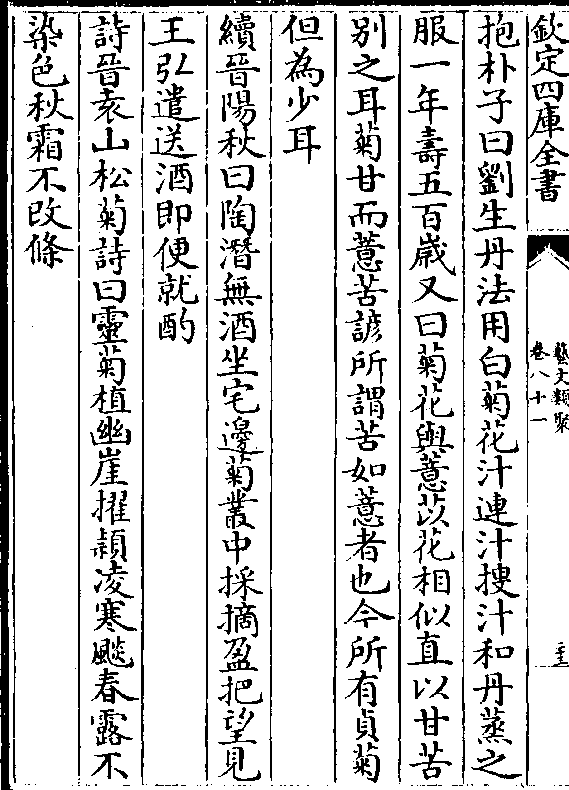 欽定四庫全書
藝文類聚
卷八十一
抱朴子曰劉生丹法用白菊花汁連汁摉汁和丹蒸之
服一年壽五百歲又曰菊花與薏苡花相似直以甘苦
别之耳菊甘而薏苦諺所謂苦如薏者也今所有貞菊
但為少耳
續晉陽秋曰陶潛無酒坐宅邊菊叢中採摘盈把望見
王弘遣送酒即便就酌
詩晉袁山松菊詩曰靈菊植幽崖擢頴凌寒飈春露不
染色秋霜不改條